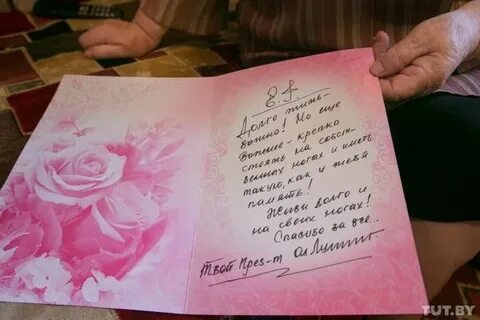 Е. Я.
Долго жить -
важно! Но еще
важнее - крепко
стоять на собст-
венных ногах и иметь
такую, как у тебя
память!
Живи долго и
на своих ногах!
Спасибо за все...
Твой През-т
TUT.BY